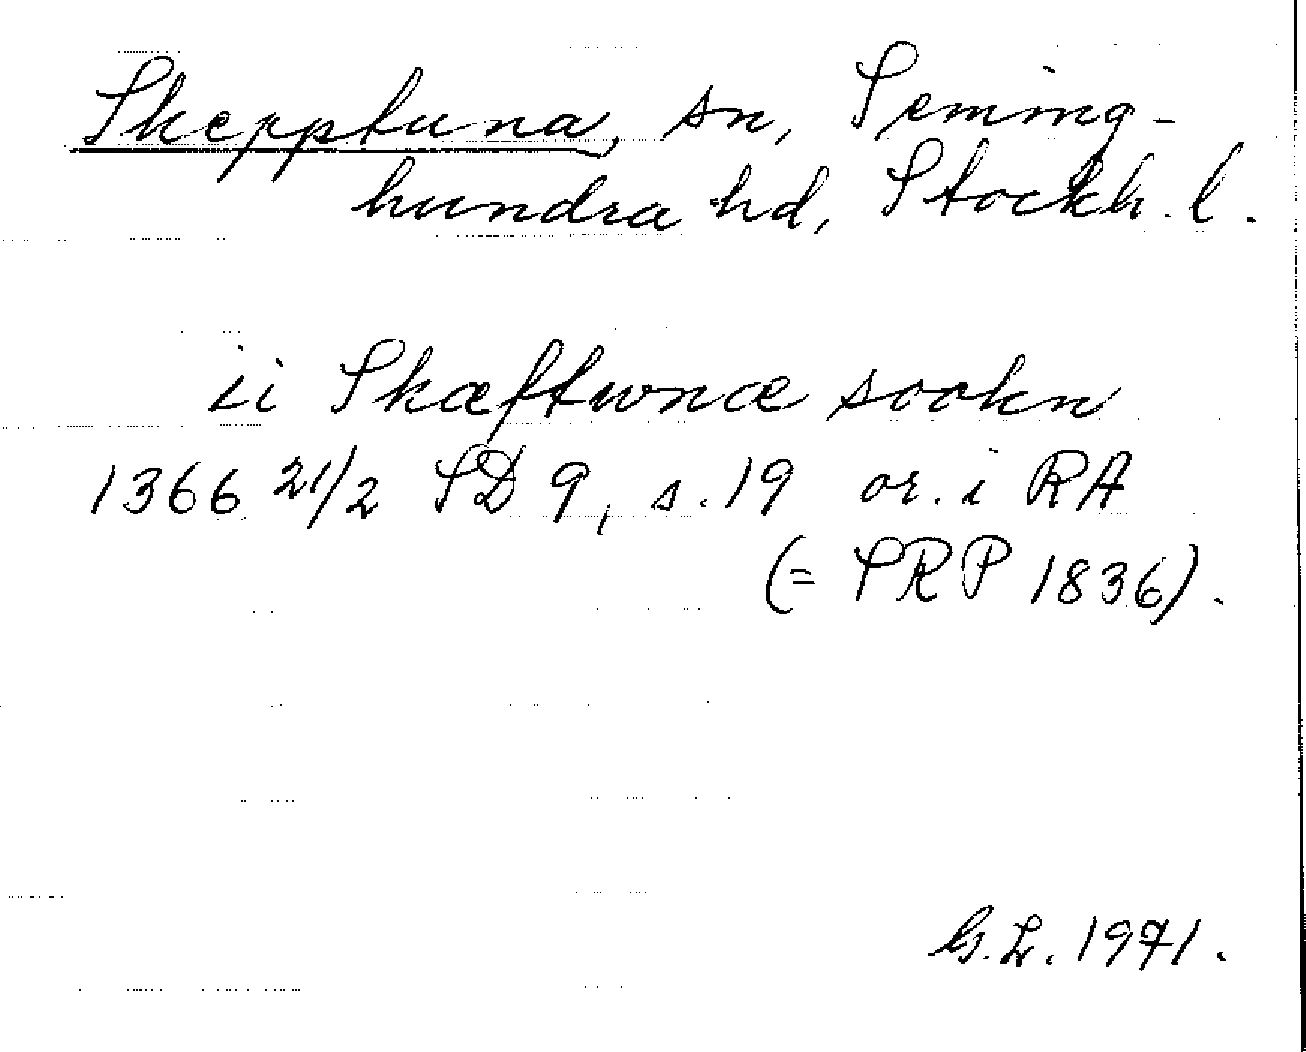 Skepptuna, sn, Seming-
hundra hd, Stockh. l.
ii Skæftwnæ sookn
1366 21/2 SD 9, s. 19 or. i RA
(= SRP 1836).
G.L. 1971.